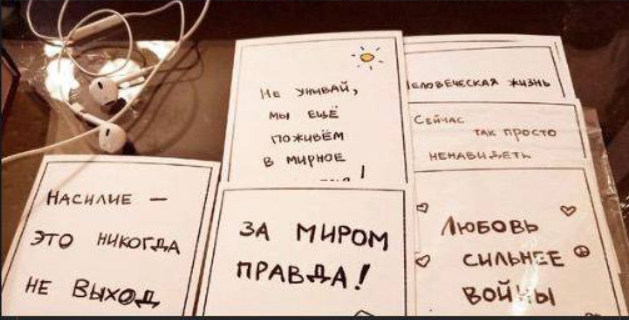 Не унывай,
мы ещё
поживём
в мирное
!
человеческая жизнь
Сейчас
так просто
ненавидеть
Насилие —
это никогда
не выход
За миром
правда!
Любовь
сильнее
войны